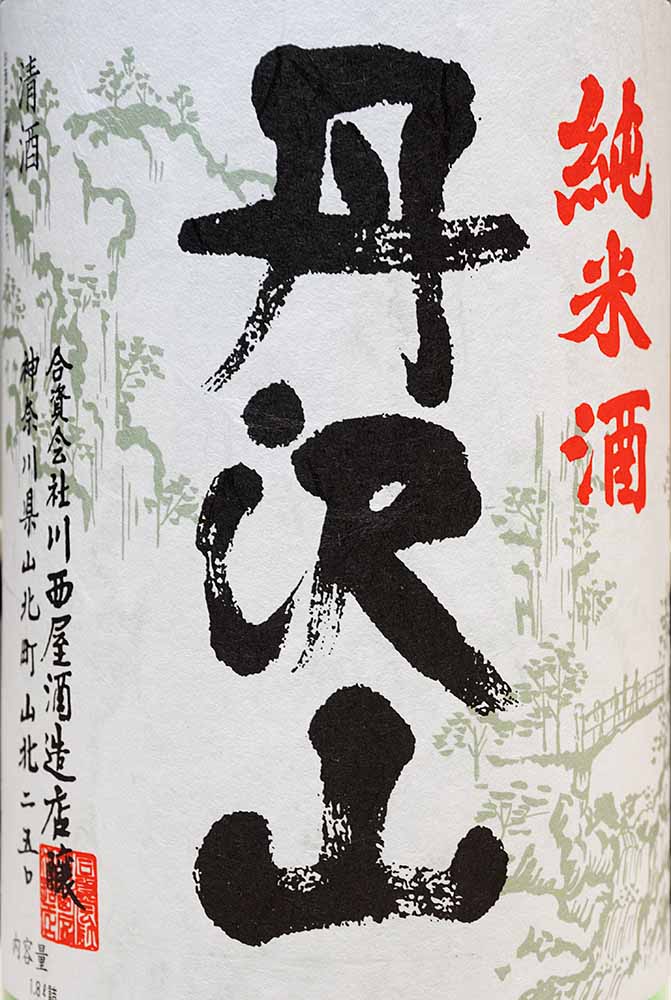 純米酒
丹沢山
清酒
合資会社川西屋酒造店醸
神奈川県山北町山北二五〇
内容量
1.8ℓ詰